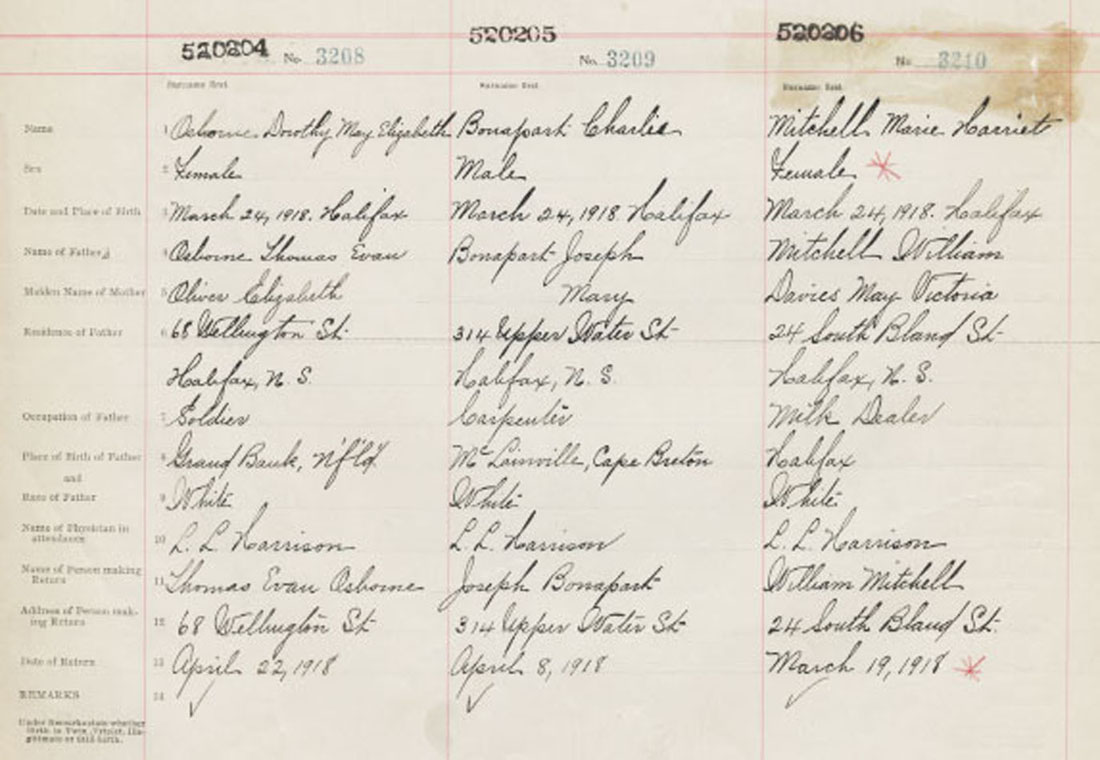 520204 520205 520206
No. 3208 No. 3209 No. 3210
Surname first Surname first Surname first
Name 1 Osborne Dorothy May Elizabeth Bonapart Charlie Mitchell Marie Harriet
Sex 2 Female Male Female *
Date and Place of Birth 3 March 24, 1918. Halifax March 24, 1918 Halifax March 24, 1918. Halifax
Name of Father 4 Osborne Thomas Evan Bonapart Joseph Mitchell William
Maiden Name of Mother 5 Oliver Elizabeth Mary Davies May Victoria
Residence of Father 6 68 Wellington St 314 Upper Water St 24 South Bland St
Halifax, N. S. Halifax, N. S. Halifax, N. S.
Occupation of Father 7 Soldier Carpenter Milk Dealer
Place of Birth of Father 8 Grand Bank, Nf'l'd. Cape Breton Halifax
and
Race of Father 9 White White White
Name of Physician in
attendance 10 L. L. Harrison L. L. Harrison L. L. Harrison
Name of Person making
Return 11 Thomas Evan Osborne Joseph Bonapart William Mitchell
Address of Person mak-
ing Return 12 68 Wellington St 314 Upper Water St 24 South Bland St.
Date of Return 13 April 22, 1918 April 8, 1918 March 19, 1918 *
REMARKS 14 ✓ ✓ ✓
Under Remarks state whether
Birth is Twin, Triplet, Ille-
gitimate or Still birth.